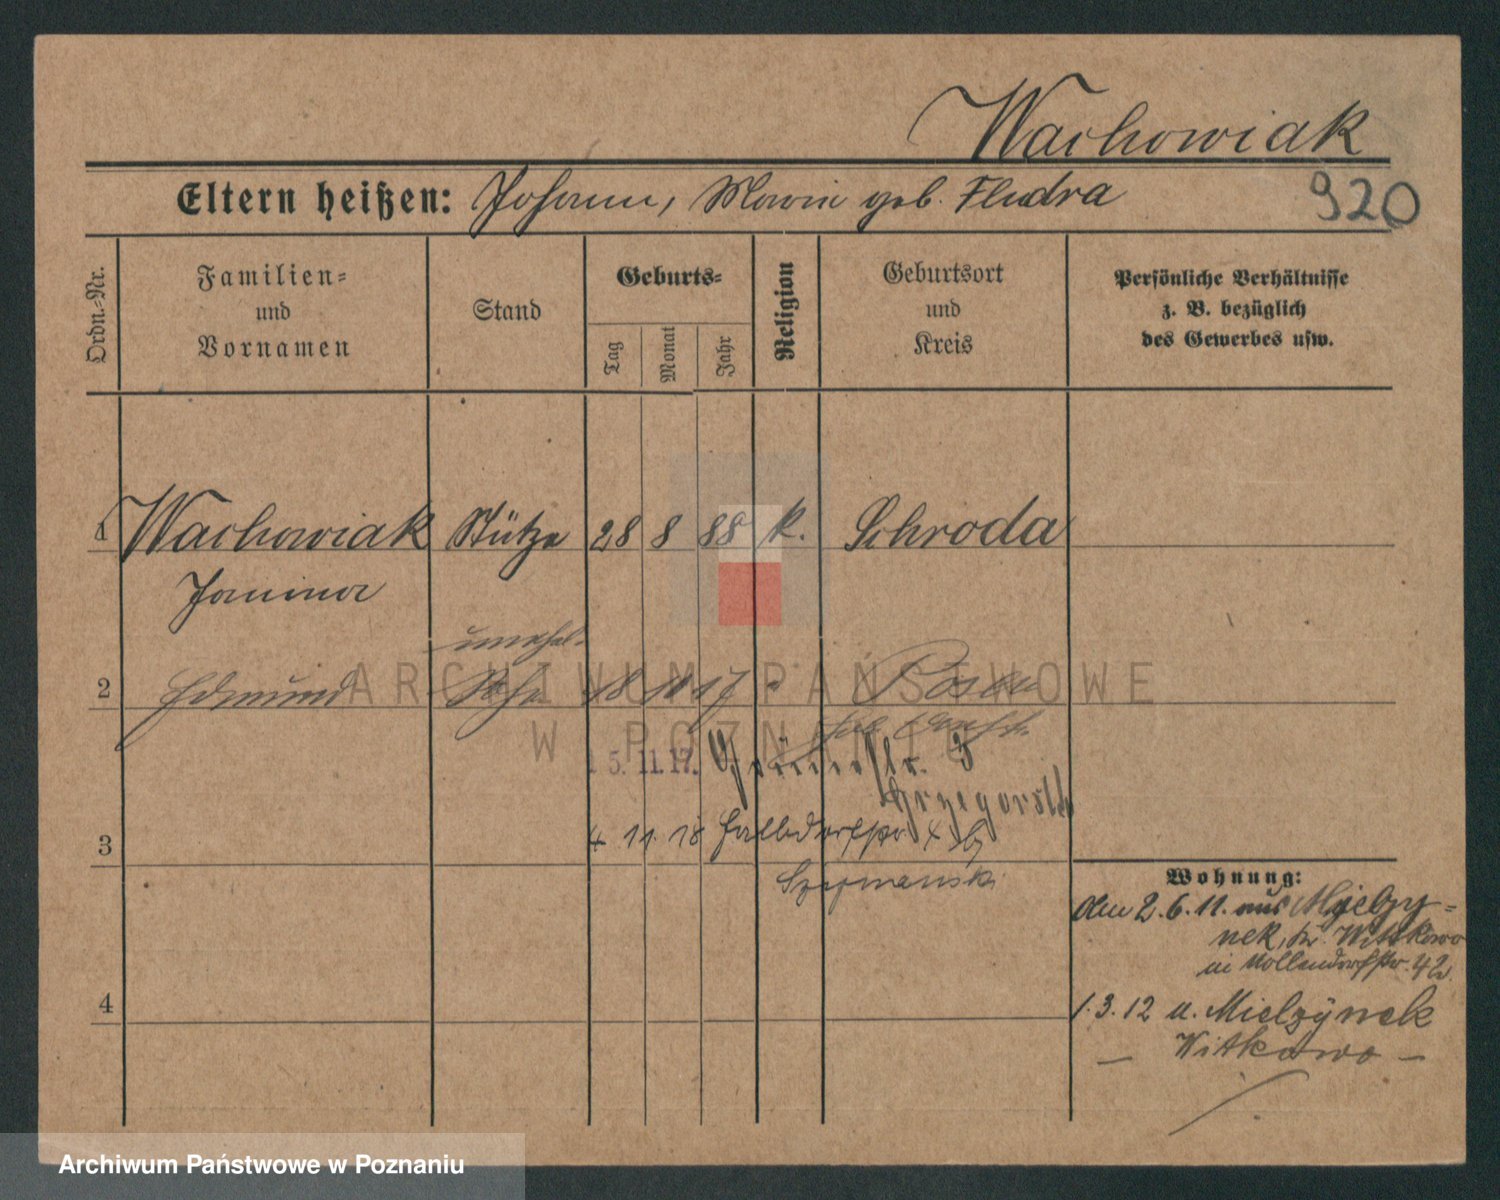 Wachowiak
Eltern heißen: Johann, Marie geb. Fludra
920
Ordn.-Nr.
Familien-
und
Vornamen
Stand
Geburts-
Tag
Monat
Jahr
Religion
Geburtsort
und
Kreis
Persönliche Verhältnisse
z. B. bezüglich
des Gewerbes usw.
1 Wachowiak Stütze 28 8 88 k. Schroda
Janina
unehel.
2 Edmund Sohn 18 10 17 Posen
15.11.17.
3
4 11 18
Szymanski
Wohnung:
den 2.6.11. aus Mielzy-
nek, Kr. Witkowo
in Möllendorfstr. 42
4
1.3.12 n. Mielzynek
– Witkowo –
ARCHIWUM PAŃSTWOWE
W POZNANIU
Archiwum Państwowe w Poznaniu